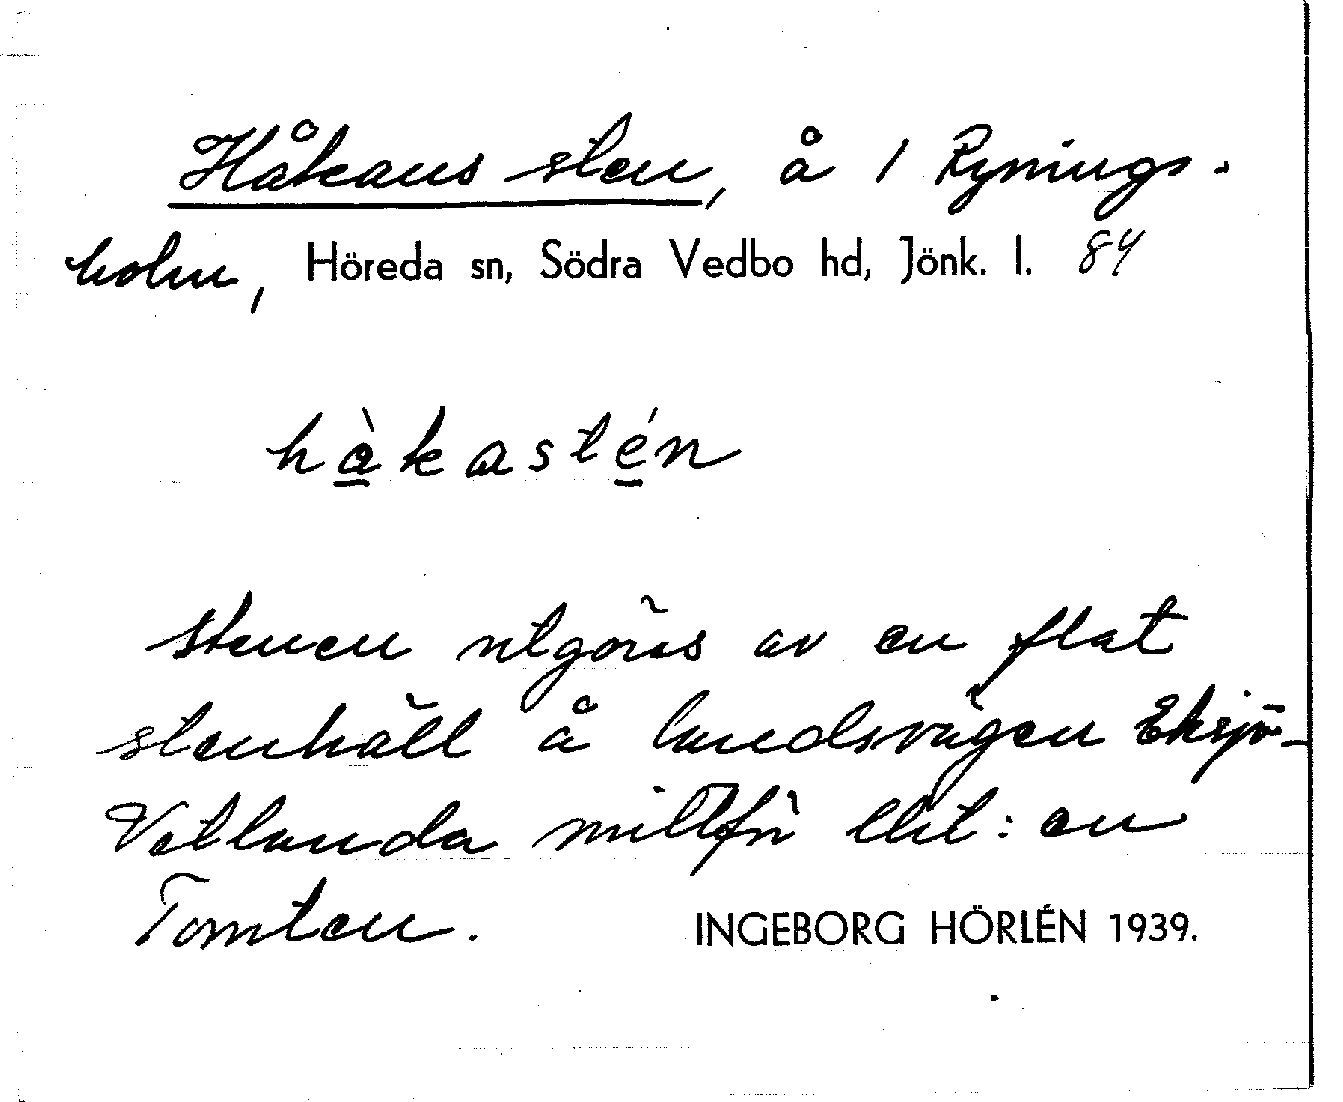 Håkans sten, å 1 Rynings-
holm, Höreda sn, Södra Vedbo hd, Jönk. l. 84
hàkastén
Stenen utgöres av en flat
stenhäll å landsvägen Eksjö-
Vetlanda mitt för lht: en
Tomten.
INGEBORG HÖRLÉN 1939.